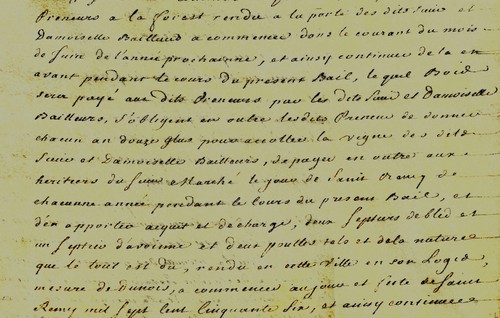 Preneurs a la forest rendu a la porte des dits Sieur et
Damoiselle Bailleurs a commencer dans le courant du mois
de Juin de l'année prochaine, et ainsy continuer de la en
avant pendant le cours du present Bail, le quel Bois
sera payé aux dits Preneurs par les dits Sieur et Damoiselle
Bailleurs, s'obligent en outre les dits Preneurs de donner
chacun an douze pour accoller la vigne des dits
Sieur et Damoiselle Bailleurs, de payer en outre aux
heritiers du Sieur Marché le jour de Saint Remy de
chacunne année pendant le cours du present Bail, et
d'en apporter acquit et decharge, deux septiers de bled et
un septier d'avoinne et deux poulles tels et de la nature
que le tout est du, rendu en cette Ville en son Logis
mesure de dunois, a commencer au jour et feste de Saint
Remy mil sept cent cinquante six, et ainsy continuer